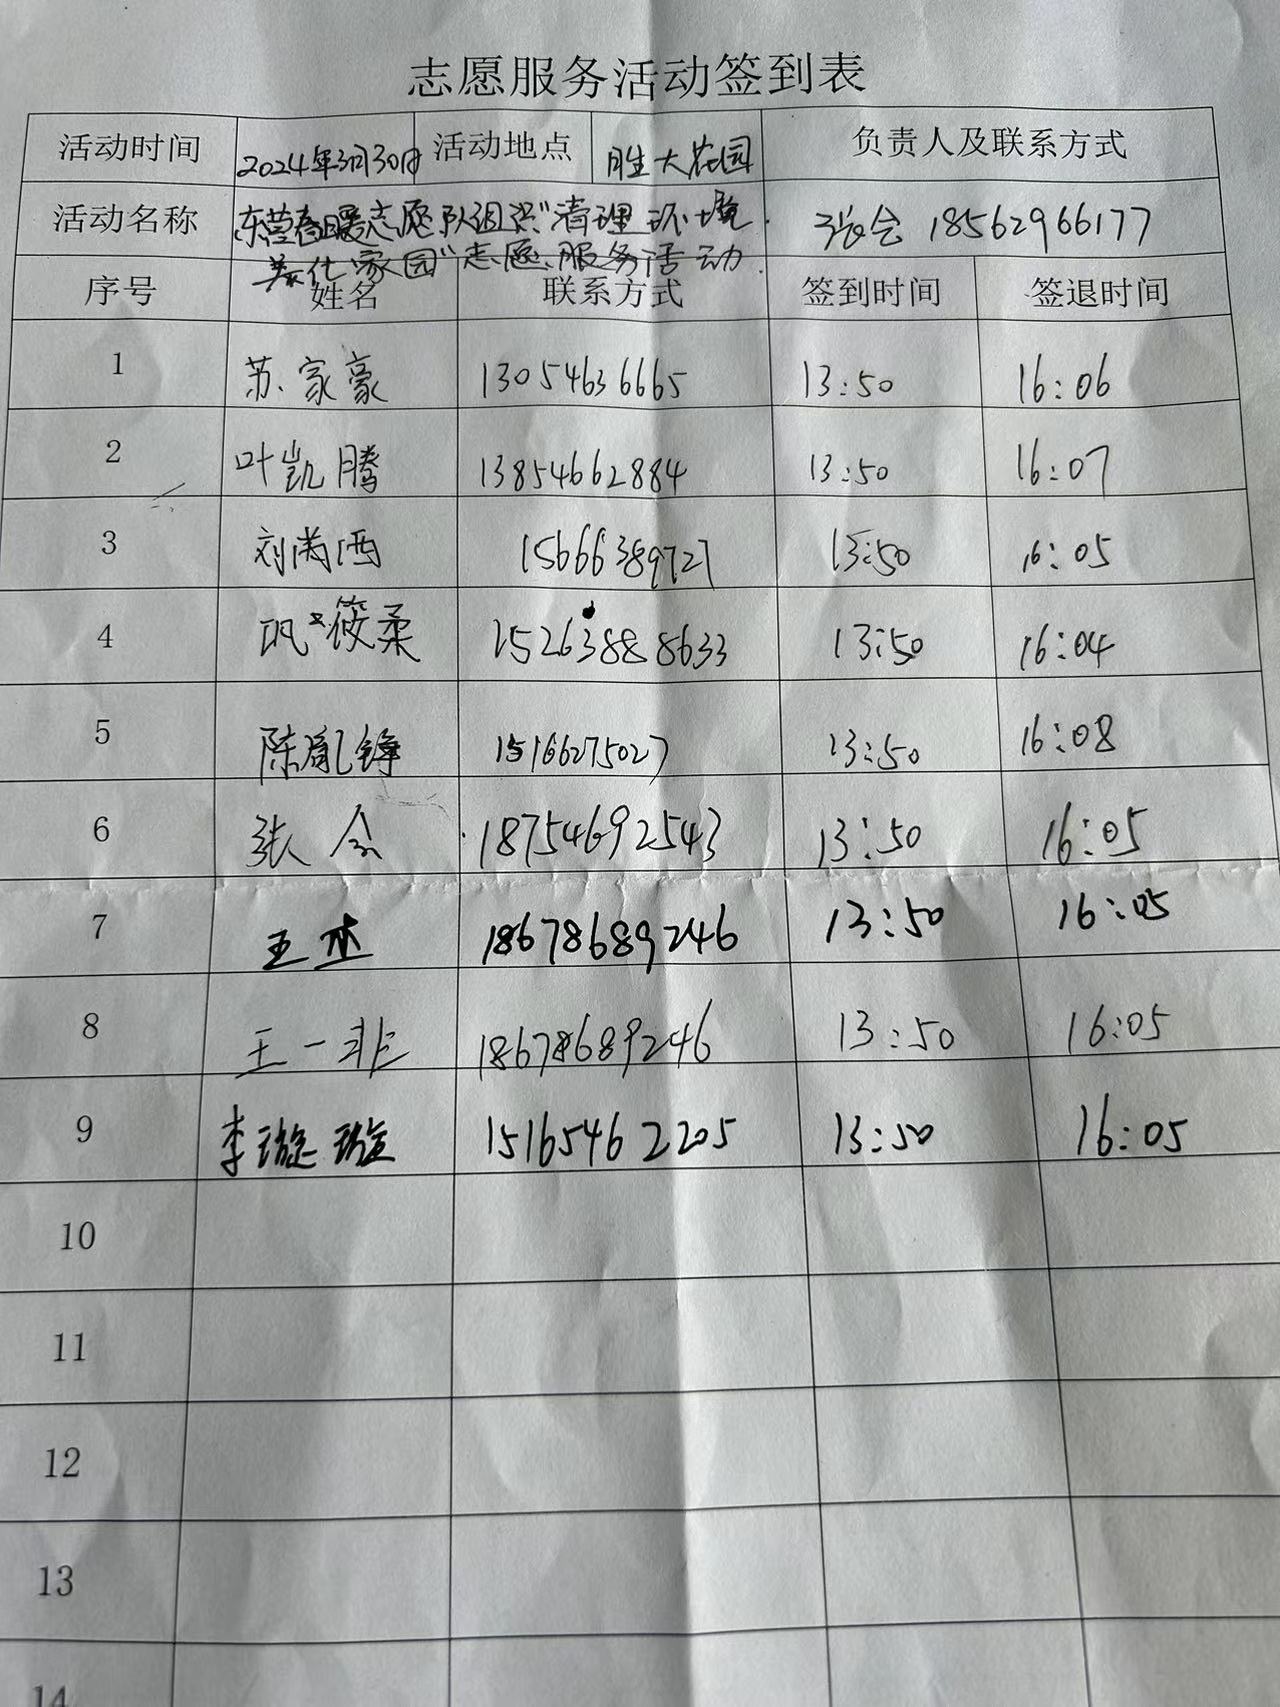 志愿服务活动签到表
活动时间 2024年3月30日 活动地点 胜大花园 负责人及联系方式
活动名称 东营春暖志愿队组织"清理环境 张会 18562966177
美化家园"志愿服务活动.
序号 姓名 联系方式 签到时间 签退时间
1 苏家豪 13054636665 13:50 16:06
2 叶凯腾 13854662884 13:50 16:07
3 刘芮西 15666389727 13:50 16:05
4 巩筱柔 15263888633 13:50 16:04
5 陈胤铮 15166275027 13:50 16:08
6 张会 18754692543 13:50 16:05
7 王 18678689246 13:50 16:05
8 王一非 18678689246 13:50 16:05
9 李璇璇 15165462205 13:50 16:05
10
11
12
13
14